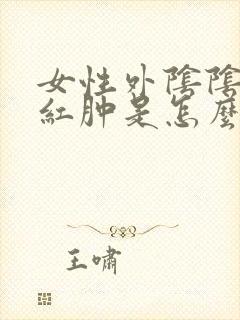 女性外陰陰
紅肿是怎麽
王嘯